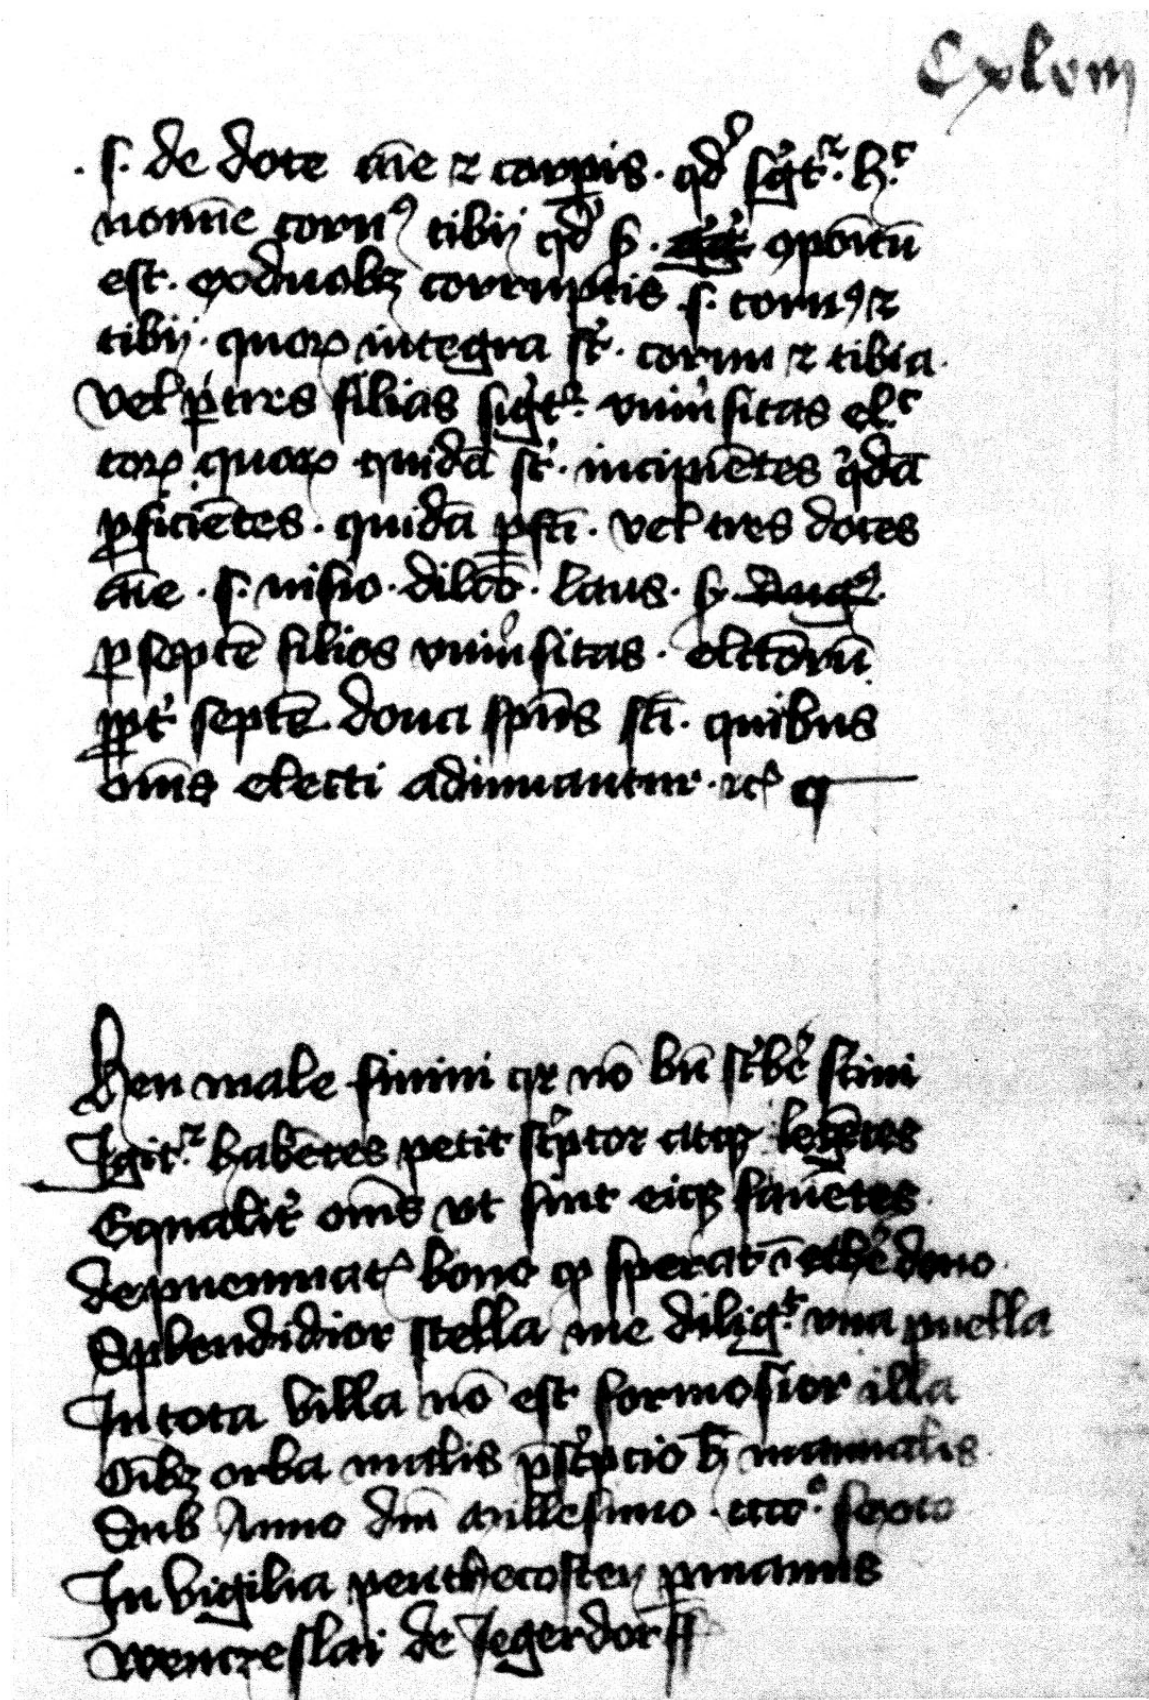 Cxlvm
. s. de dote aīe ⁊ corp̱is . qd̓ sīgt᷑ . h͛
nomīe cornꝰ tibij qd̓ ẜ . ꝯpoītū
est . ex duobꝫ corruptis .s. cornꝰ ⁊
tibij . quoꝝ integra st̓ . cornu ⁊ tibia .
Vel p̱ tres filias sigt᷑ . vniu̓sitas elc̄
toꝝ quoꝝ quidā st̓ . incipiētes q̓dā
ꝓficiētes . quidā p̱fc̄i . vel tres dotes
aīe . s. visio . dilcō . laus . ẜ
ꝑ septē filios vniu̓sitas . elc̄toꝝū
ꝓpt̓ septē dona sp̄us sc̄i . quibus
om̄s electi adiuuantur . ⁊cͣ
Heu male finiui qr nō bn̄ sc̓bē sciui
Igit᷑ habētes petit sc̓ptor atqꝫ legētes
Equalit̓ om̄s vt sint eiqꝫ fauētes
bono qꝫ sperat ī ethē dono
Splendidior stella me diligt̓ vna puella
In tota villa nō est formosior illa
Oībꝫ orba malis p̄sc̓ptio h̄ manualis
Sub Anno dn̄i millesimo . cccc° sexto
In vigilia penthecosten ꝑ manus
wenczeslai de Jegerdorff